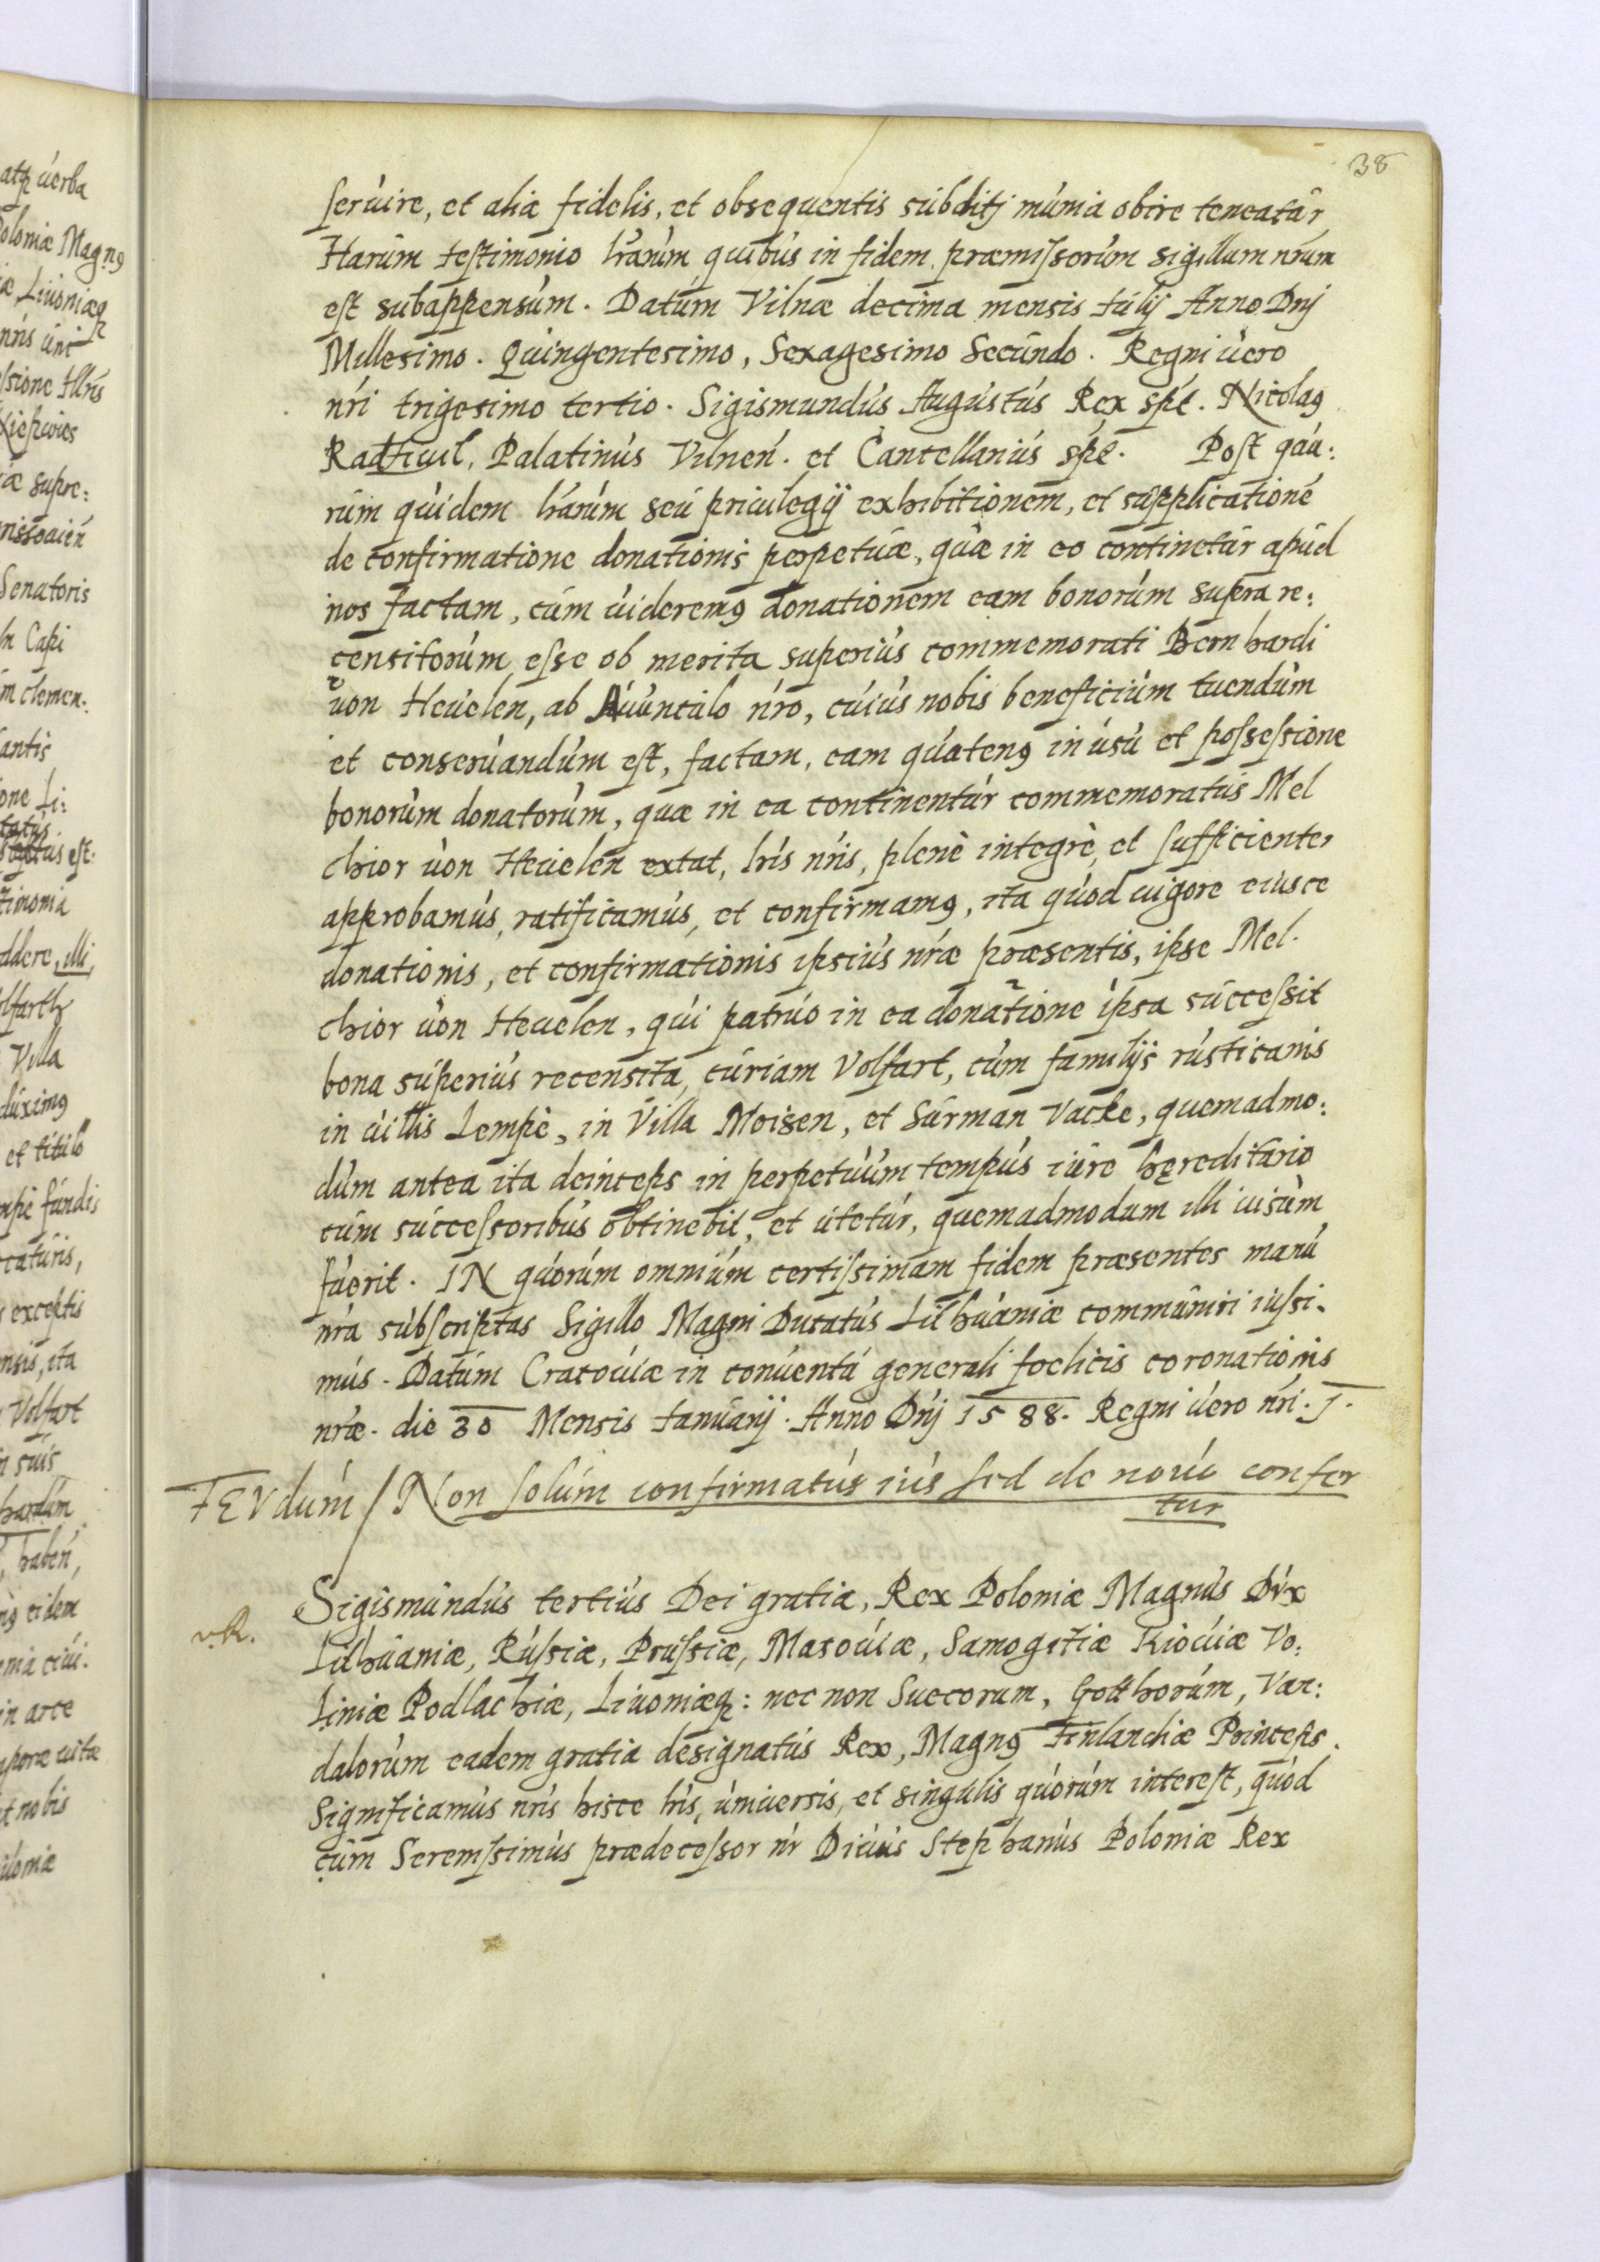 38
seruire, et aliæ fidelis, et obsequentis subditj munia obire teneatur
Harum testimonio lrarum quibus in fidem præmissorum sigillum nrum
est subappensum. Datum Vilnæ decima mensis Iulij Anno Dnj
Millesimo. Quingentesimo, Sexagesimo Secundo. Regni uero
nri trigesimo tertio. Sigismundus Augustus Rex spt. Nicolaꝰ
Radiuil, Palatinus Vilnen. et Cancellarius spt. Post qua:
rum quidem lrarum seu priuilegij exhibitionem, et supplicatione
de confirmatione donationis perpetuæ, quæ in eo continetur apud
nos factam, cum uideremꝰ donationem eam bonorum supra re:
censitorum esse ob merita superius commemorati Bernhardi
von Heuelen, ab Auunculo nro, cuius nobis beneficium tuendum
et conseruandum est, factam, eam quatenꝰ in usu et possessione
bonorum donatorum, quæ in ea continentur commemoratus Mel
chior von Heuelen extat, lris nris, plenè integrè, et sufficienter
approbamus, ratificamus, et confirmamꝰ, ita quod uigore eiusce
donationis, et confirmationis ipsius nræ præsentis, ipse Mel.
chior von Heuelen, qui patruo in ea donatione ipsa successit
bona superius recensita, curiam Volfart, cum familijs rusticanis
in uillis Lempè, in Villa Moisen, et Surman Vacke, quemadmo:
dum antea ita deinceps in perpetuum tempus iure hęreditario
cum successoribus obtinebit, et utetur, quemadmodum illi uisum
fuerit. IN quorum omnium certissimam fidem præsentes manu
nra subscriptas Sigillo Magni Ducatus Lithuaniæ communiri iussi.
mus. Datum Cracouiæ in conuentu generali foelicis coronationis
nræ. die 30 Mensis Ianuarij. Anno Dnj 1588. Regni uero nri. 1.
FEVdum / Non solum confirmatus ius sed de nouo confer
tur
Sigismundus tertius Dei gratia, Rex Poloniæ Magnus Dux
v.R.
Lithuaniæ, Russiæ, Prussiæ, Masouiæ, Samogitiæ Kiouiæ Vo:
liniæ Podlachiæ, Liuoniæq: nec non Suecorum, Gotthorum, Van:
dalorum eadem gratia designatus Rex, Magnꝰ Finlandiæ Princeps.
Significamus nris hisce lris, uniuersis, et singulis quorum interest, quod
cum Serenissimus prædecessor nr Diuus Stephanus Poloniæ Rex